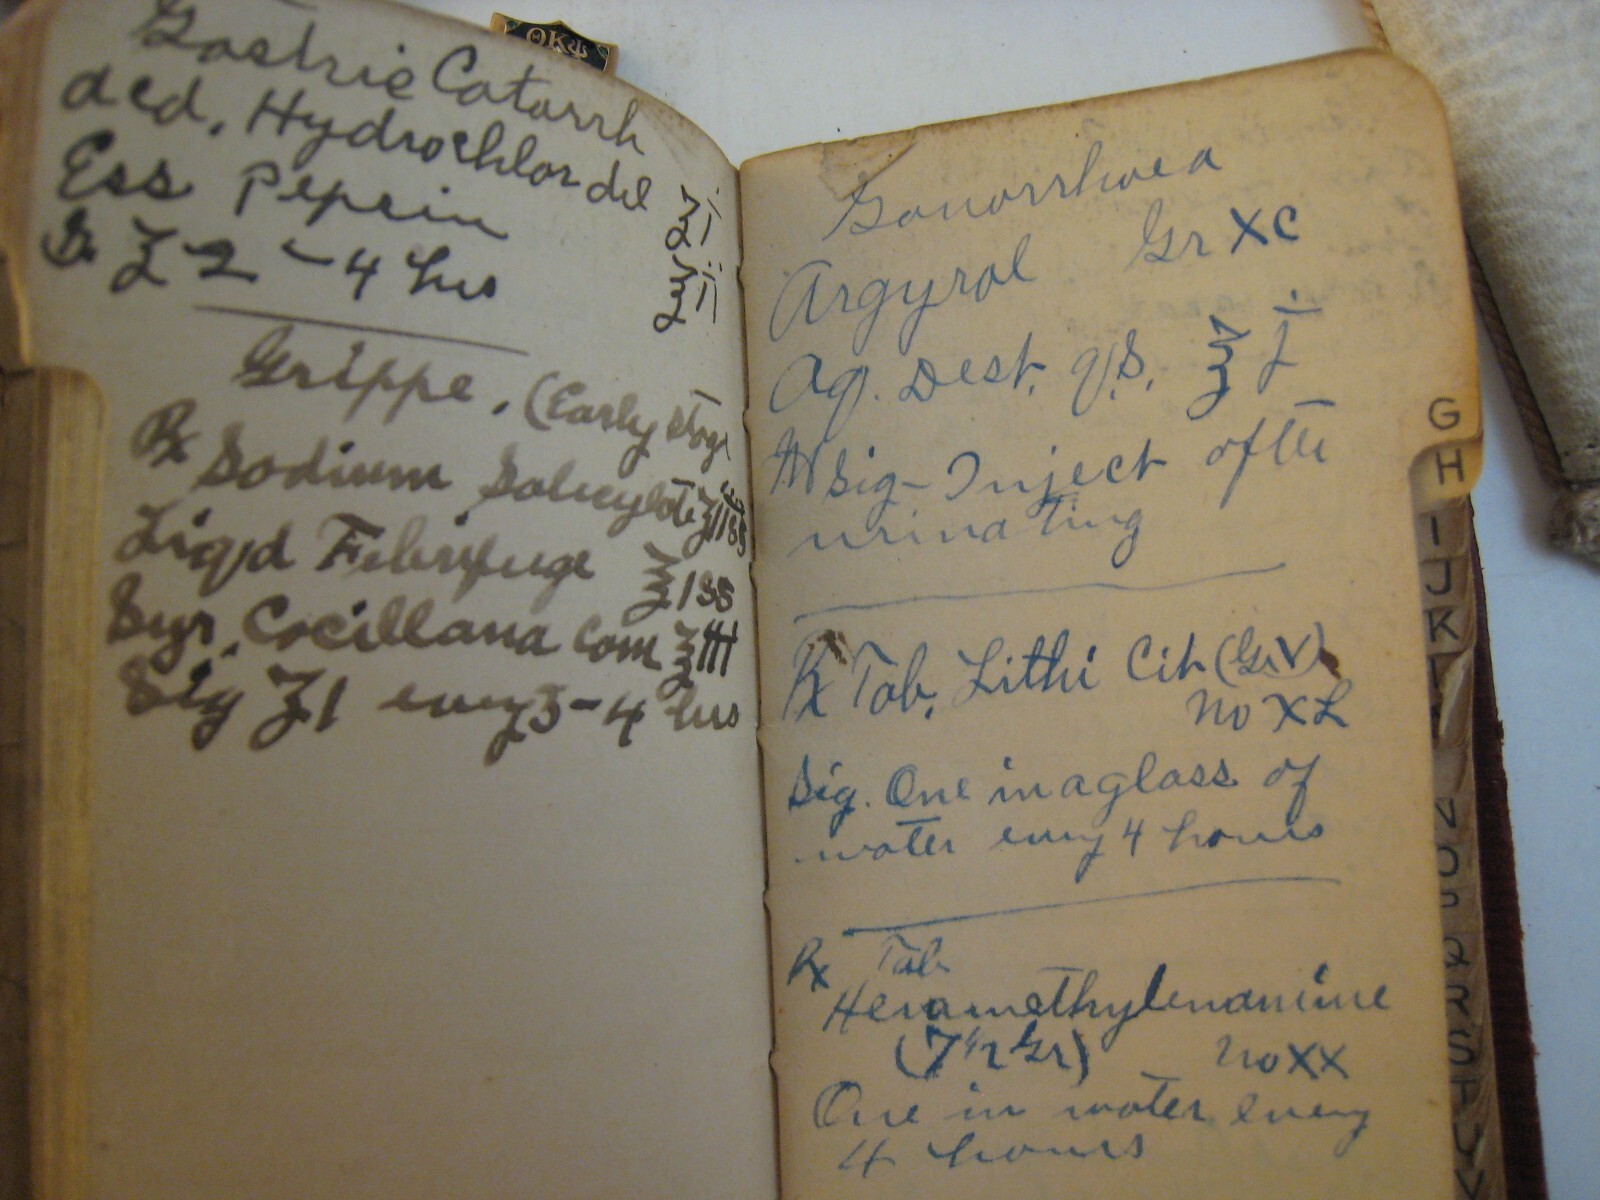 ΘΚΨ
Gastric Catarrh
acd. Hydrochlor dil ʒi
Ess Pepsin ʒii
S. ʒ 2 - 4 hrs
Grippe. (Early Stage
Rx Sodium Salicylate ʒiiss
Liqd Febrifuge ℥iss
Syr. Cocillana Com ℥III
Sig ʒ1 every 3-4 hrs
Gonorrhoea
Argyrol Gr XC
Aq. Dest. q.s. ℥ i
Sig - Inject after
urinating
Rx Tab. Lithi Cit (Gr V)
No XL
Sig. One in a glass of
water every 4 hours
Rx Tab
Hexamethylenamine
(7 1/2 Gr) No XX
One in water every
4 hours
G
H
I
J
K
L
N
O
P
Q
R
S
T
U
V